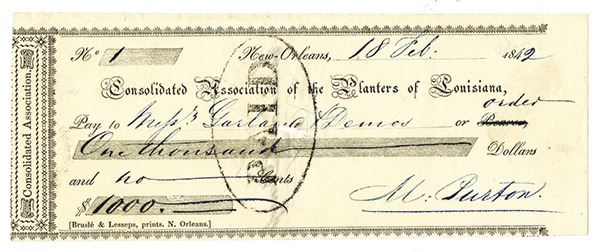 Consolidated Association.
No. 1 New-Orleans, 18 Feb: 1842
Consolidated Association of the Planters of Louisiana,
order
Pay to Messrs Garland & Demos or Bearer,
One thousand Dollars
and no Cents
$ 1000. M: Purton.
[Bruslé & Lesseps, prints. N. Orleans.]
PAID